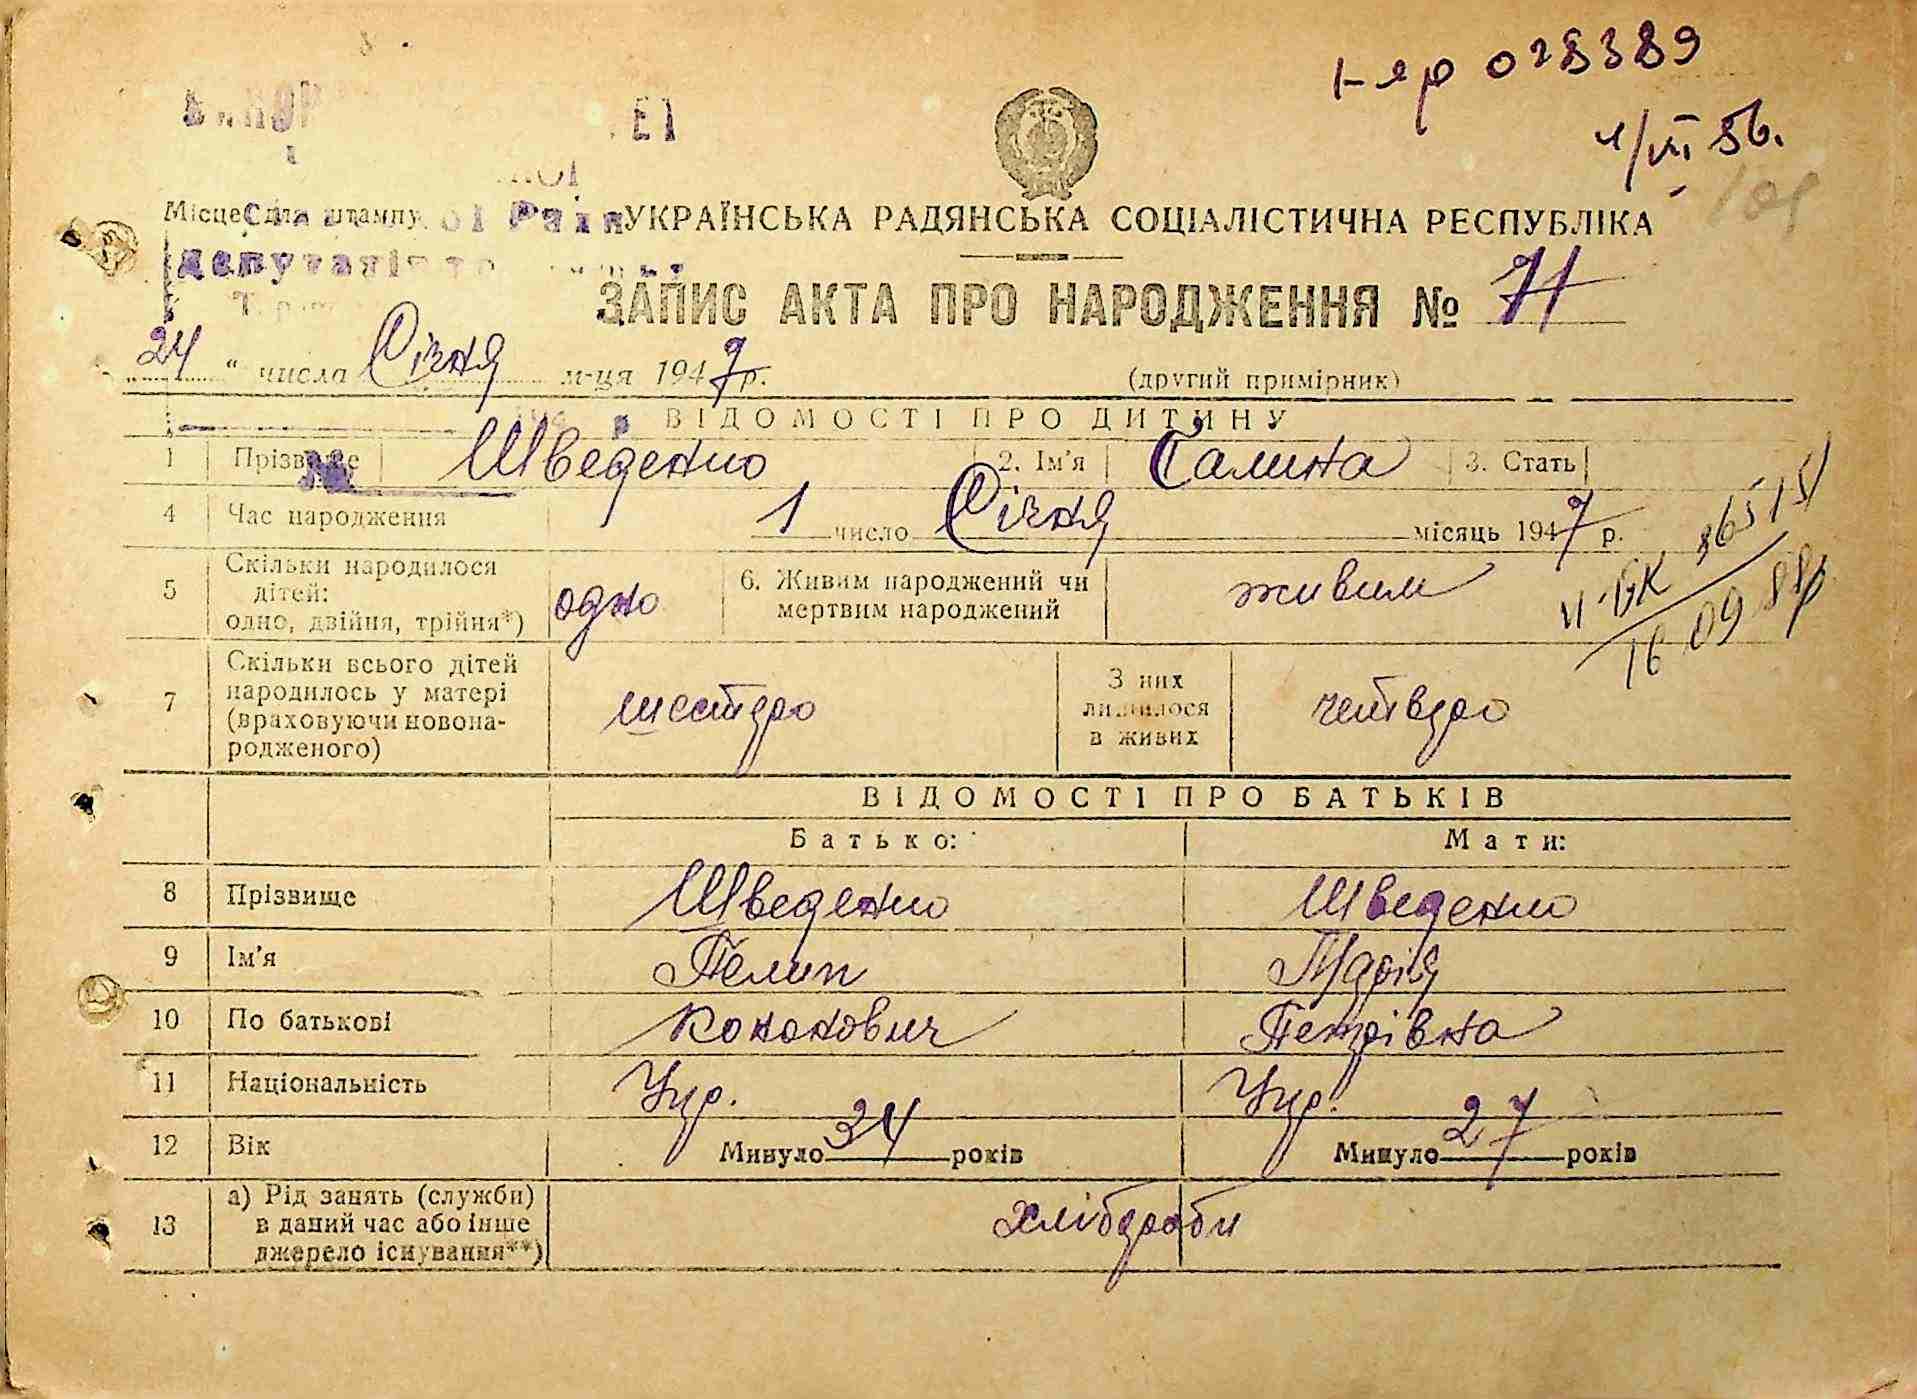 І-яр 028389
4/VII 56.
Місце для штампу
депутатів
УКРАЇНСЬКА РАДЯНСЬКА СОЦІАЛІСТИЧНА РЕСПУБЛІКА
ЗАПИС АКТА ПРО НАРОДЖЕННЯ № 71
„24“ числа Січня м-ця 1947 р.
(другий примірник)
ВІДОМОСТІ ПРО ДИТИНУ
1 Прізвище Шведенко 2. Ім'я Галина 3. Стать
4 Час народження 1 число Січня місяць 1947 р.
5 Скільки народилося дітей: одно, двійня, трійня*) одно 6. Живим народжений чи мертвим народжений живим
86515
16 09 88р
7 Скільки всього дітей народилось у матері (враховуючи новонародженого) шестеро З них лишилося в живих четверо
ВІДОМОСТІ ПРО БАТЬКІВ
Батько: Мати:
8 Прізвище Шведенко Шведенко
9 Ім'я Пелип Марія
10 По батькові Кононович Петрівна
11 Національність Укр. Укр.
12 Вік Минуло 34 років Минуло 27 років
13 а) Рід занять (служби) в даний час або інше джерело існування**) хлібороби